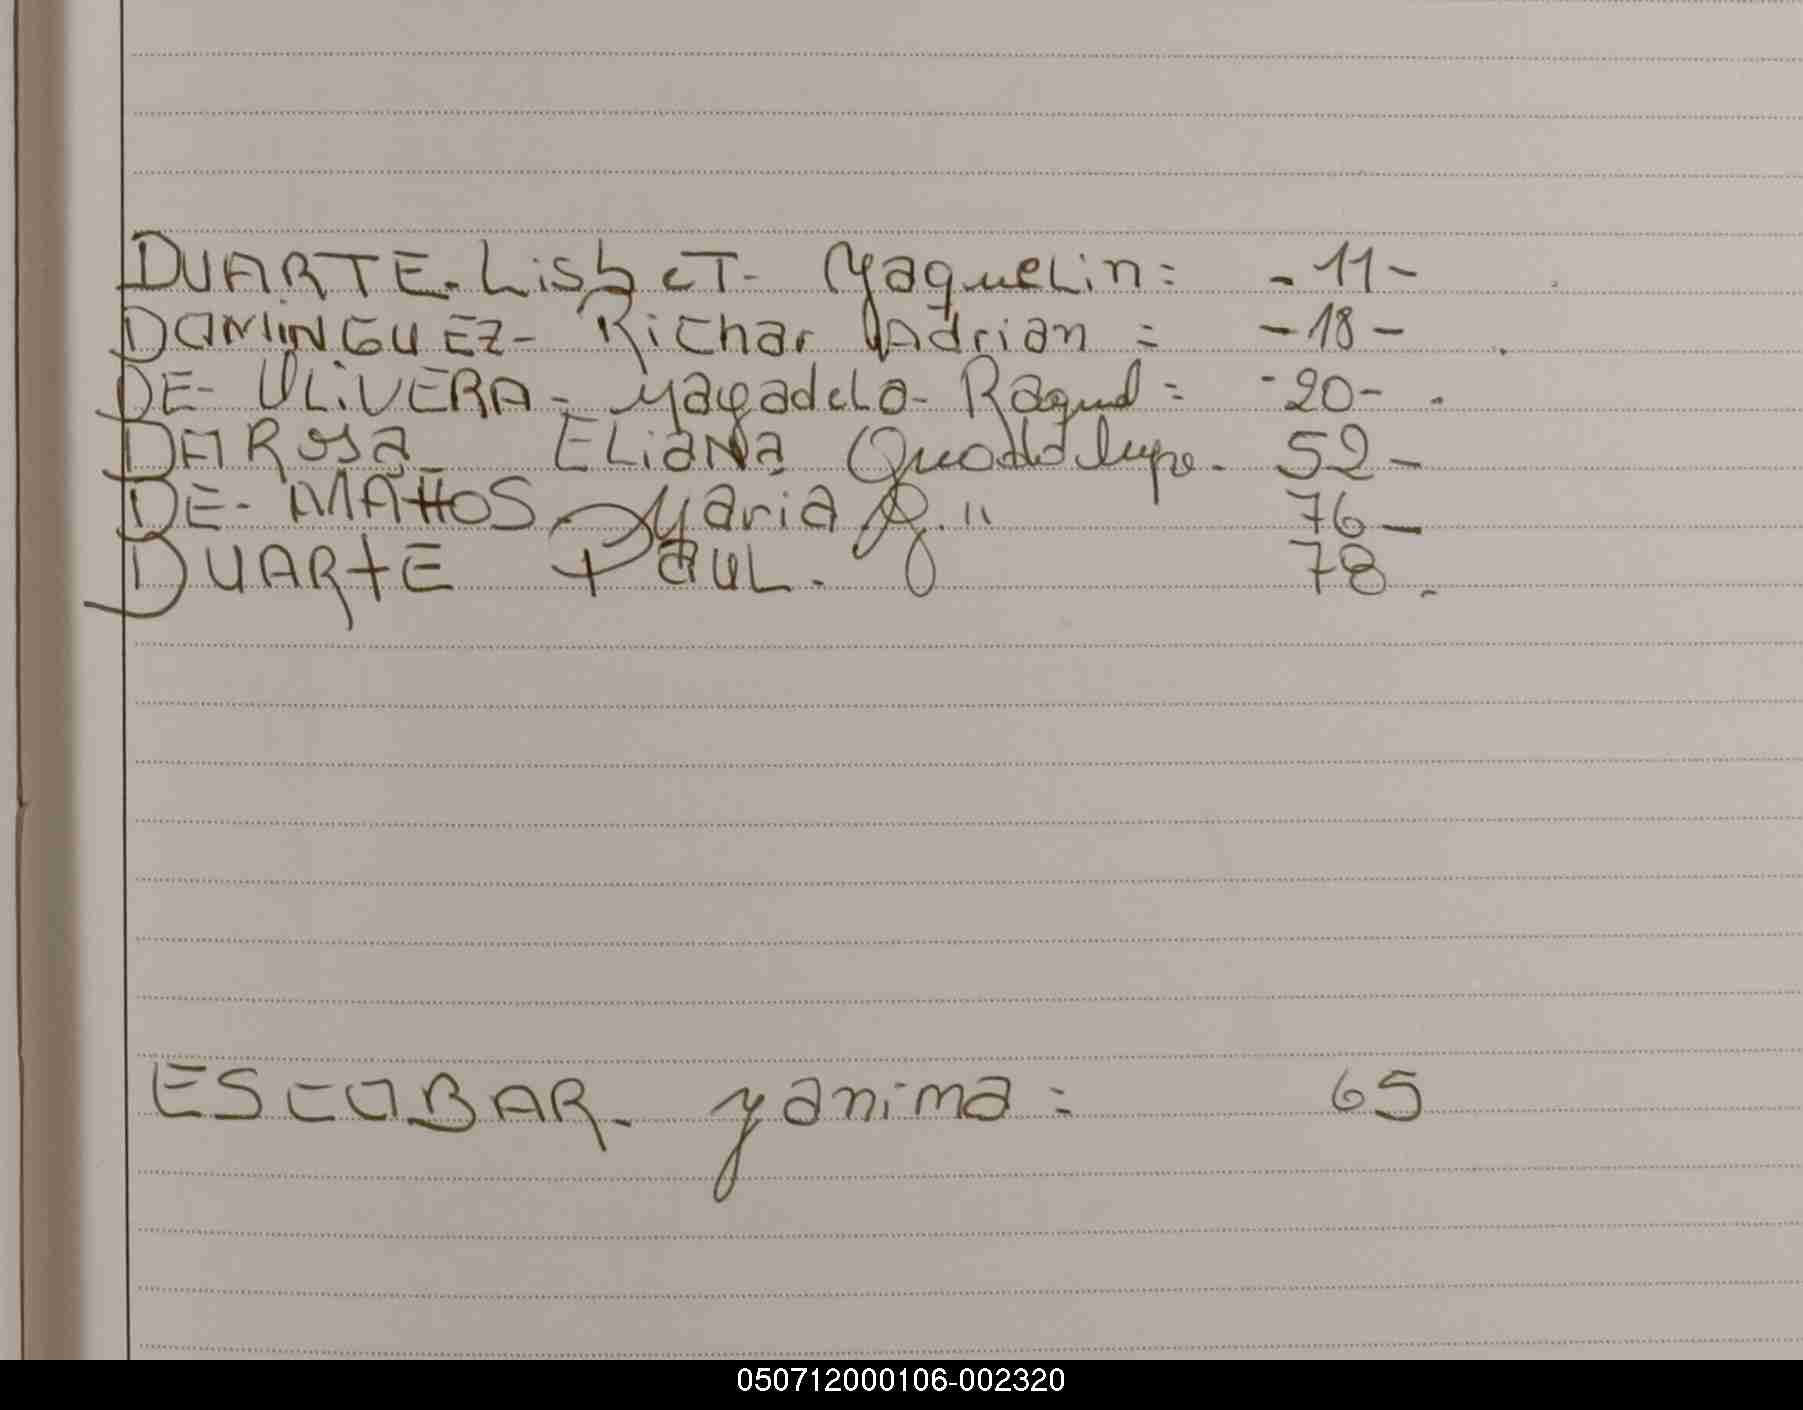 DUARTE - LisbeT - Yaquelin = - 11 -
DOMINGUEZ - Richar Adrian = - 18 -
DE - OLiVERA - Magadela - Raquel = - 20 -
DA Rosa ELiaNa Guadalupe - 52 -
DE - MAttOS Maria J. " 76 -
DUARtE PauL. 78.
ESCOBAR - yanina = 65
050712000106-002320